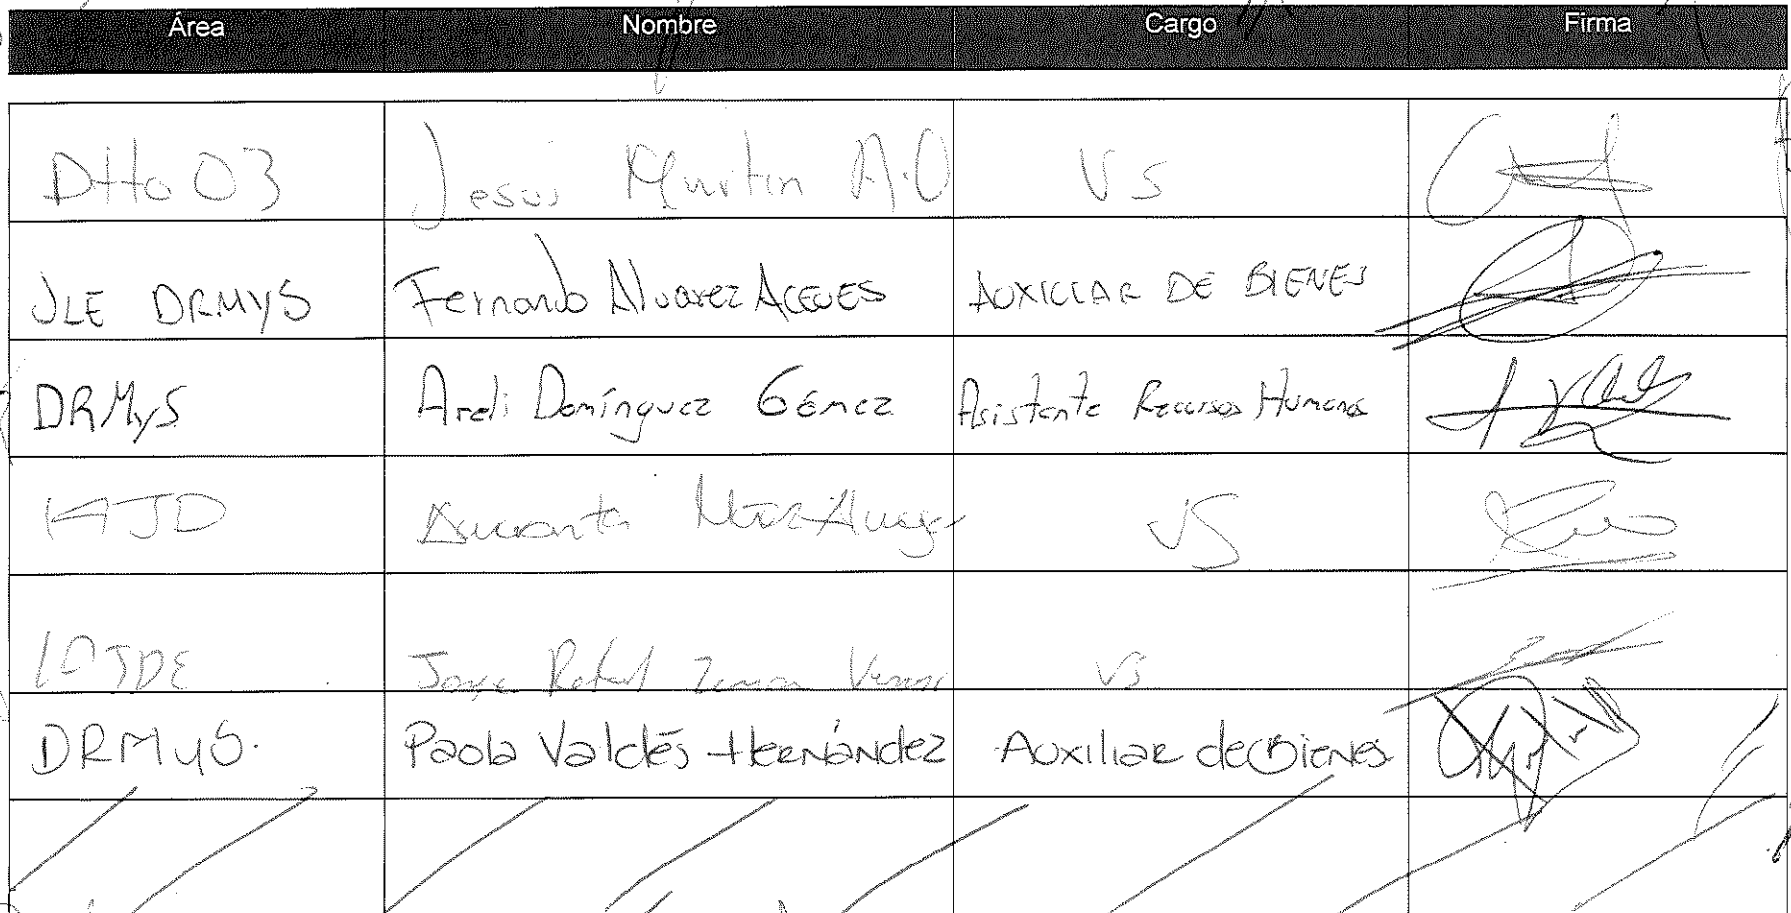 Área Nombre Cargo Firma
Dtto 03 Jesus Martin A.O VS
JLE DRMYS Fernando Alvarez ACEVES AUXILIAR DE BIENES
DRMyS Areli Domínguez Gómez Asistente Recursos Humanos
JD VS
Jorge Rafael VS
DRMyS. Paola Valdés Hernández Auxiliar de Bienes